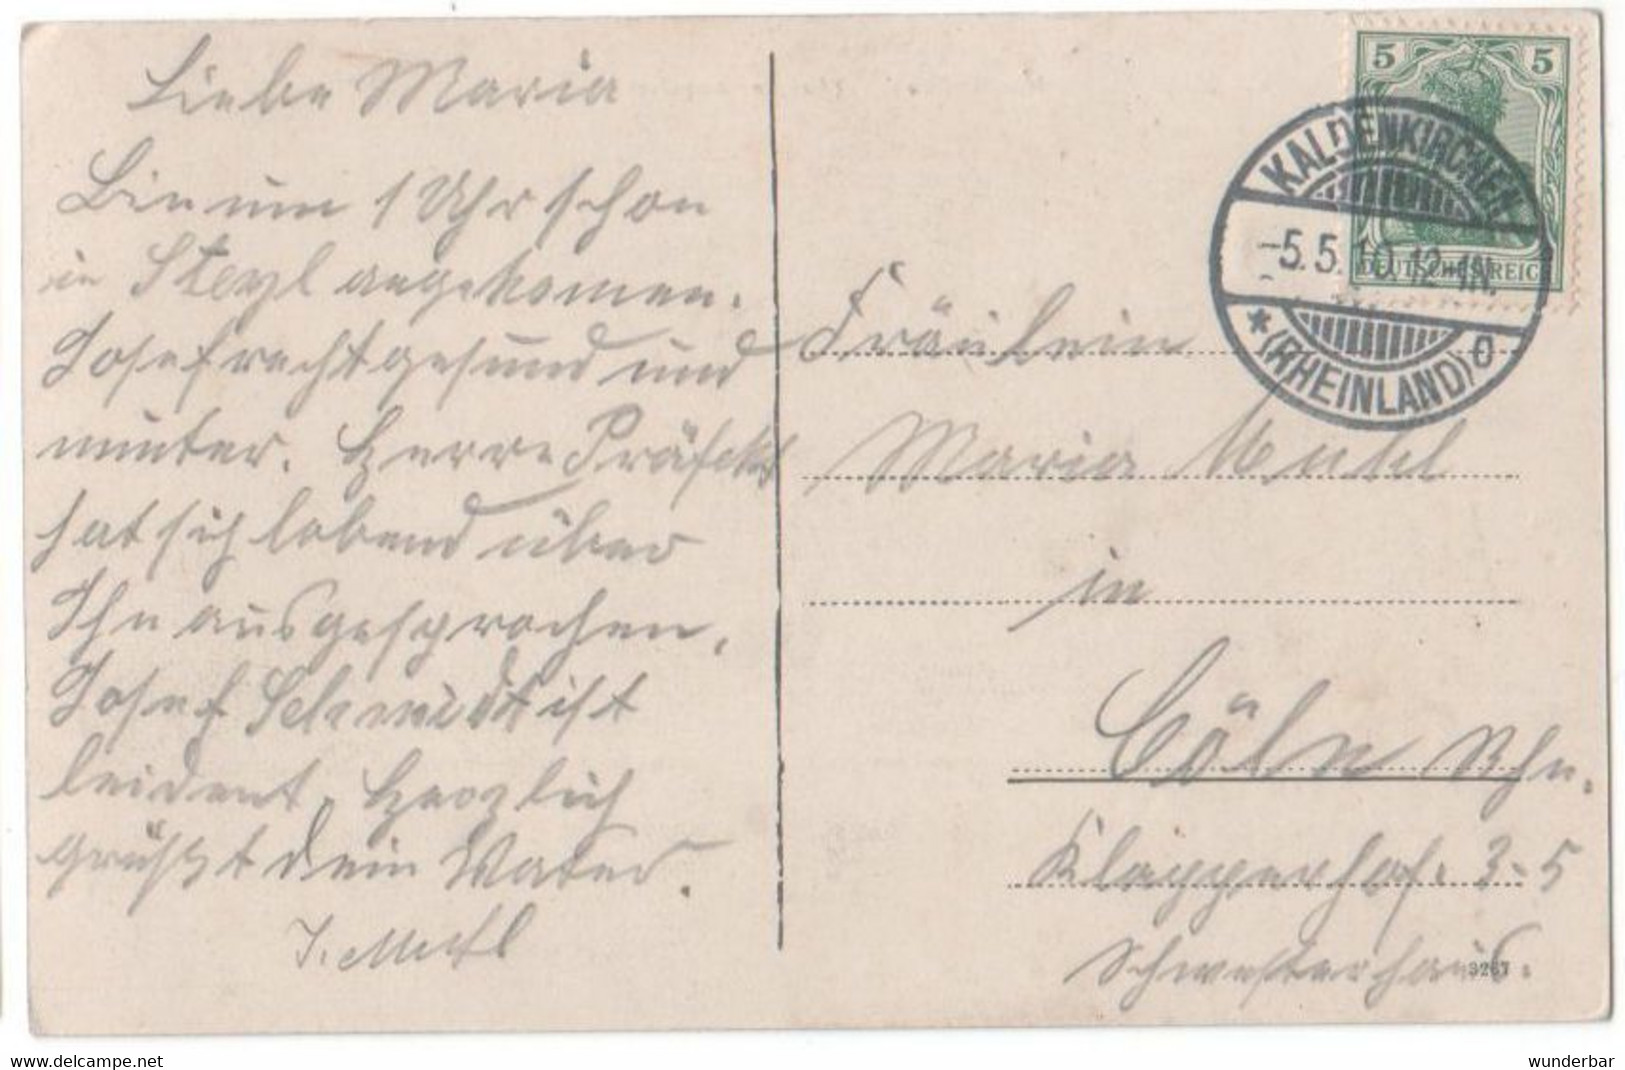 Liebe Maria
Bin um 1 Uhr schon
in Steyl angekomen.
Josef recht gesund und
munter. Herre Präfekt
hat sich lobend über
Ihn ausgesprochen.
Josef Schmidt ist
leident. Herzlich
grüßt dein Vater.
J. Muhl
5 5
DEUTSCHES REICH
KALDENKIRCHEN
-5.5.10.12-1N.
* (RHEINLAND) c
Fräulein
Maria Muhl
in
Cöln Rhn.
Klapperhof. 3-5
Schwesterhaus.
3267
www.delcampe.net
wunderbar